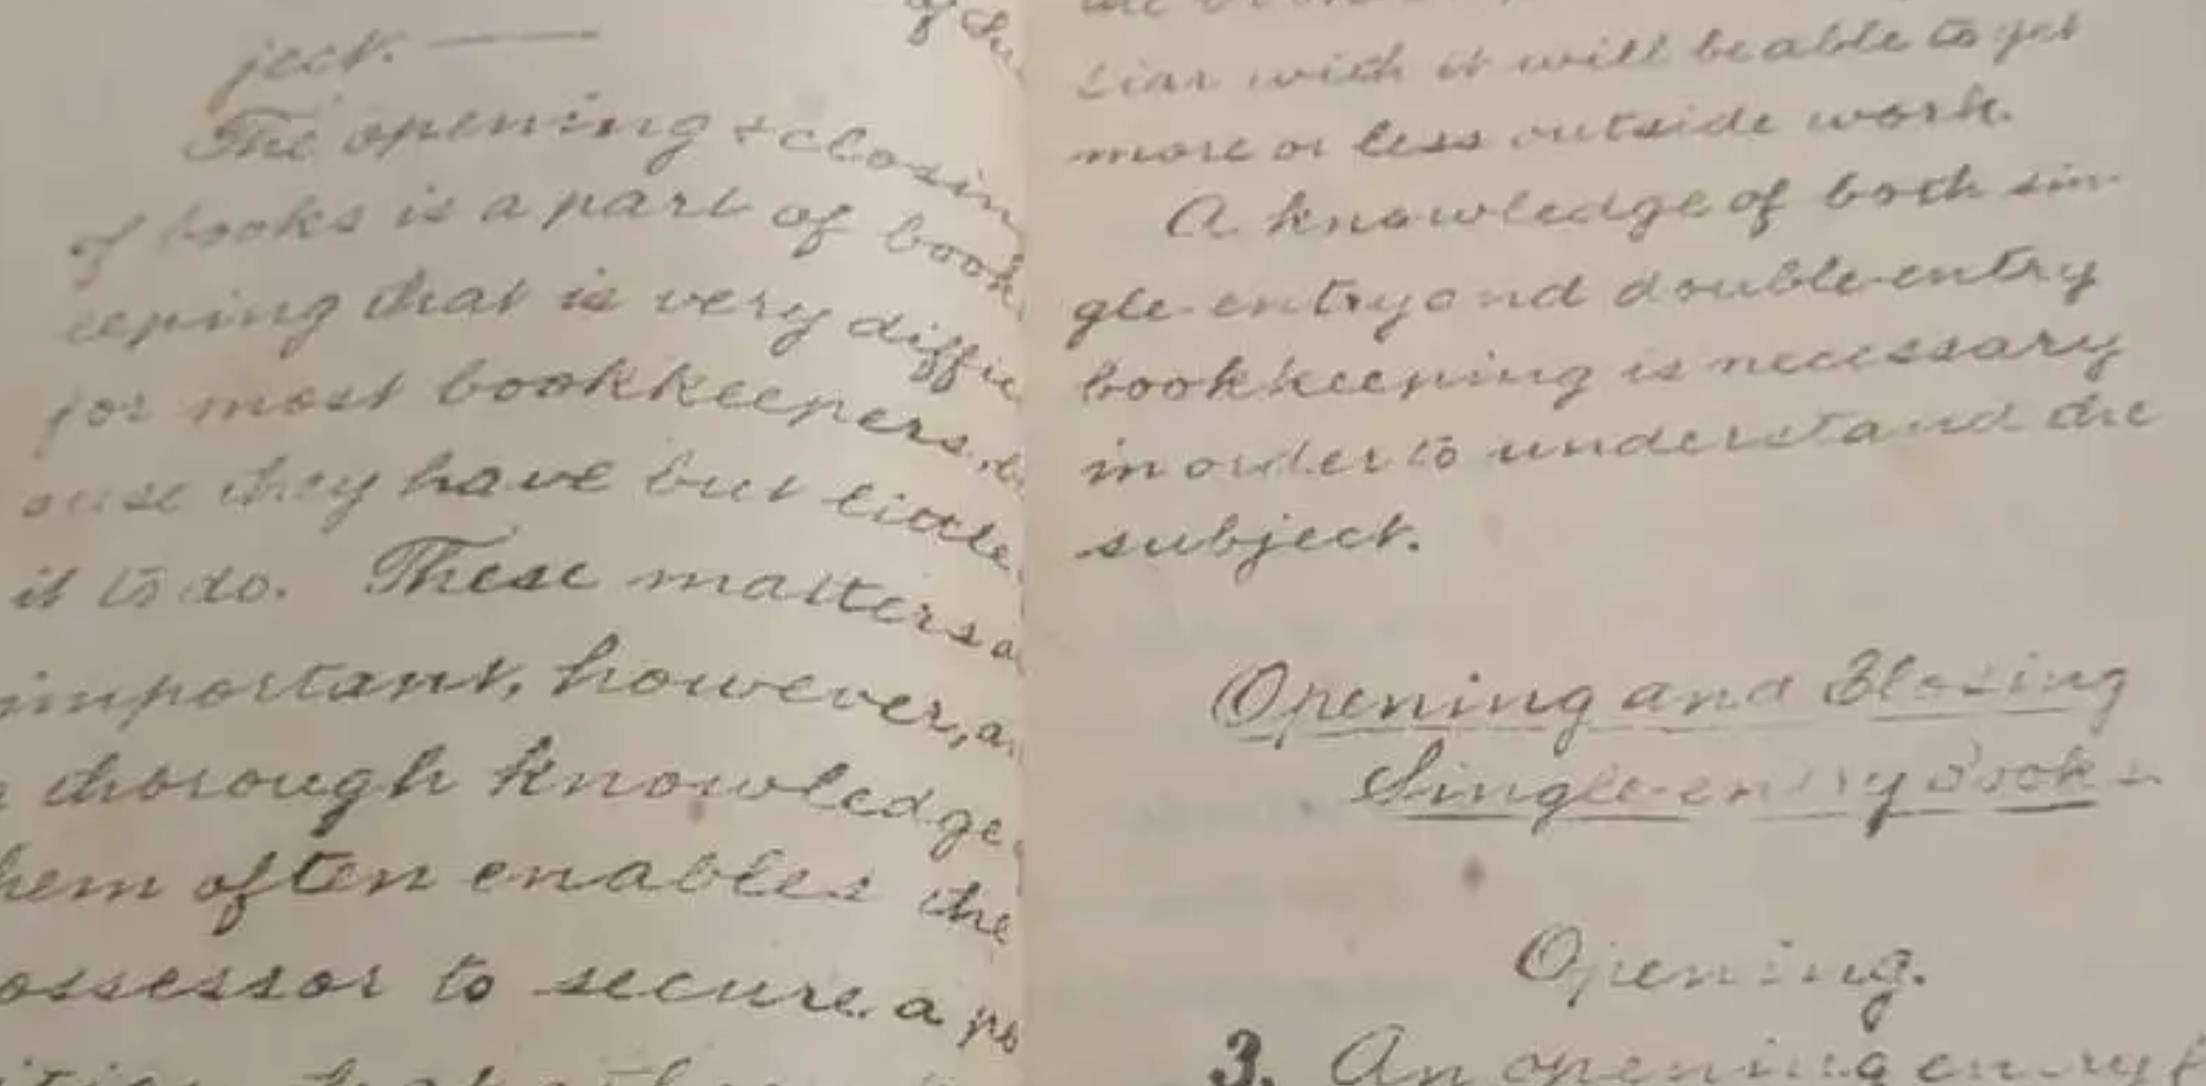 ject. —
The opening & closin
of books is a part of book
eeping that is very diffic
for most bookkeepers, b
ause they have but little
it to do. These matters a
important, however, a
thorough knowledge
hem often enables the
ossessor to secure a po
liar with it will be able to get
more or less outside work.
A knowledge of both sin-
gle-entry and double-entry
bookkeeping is necessary
in order to understand the
subject.
Opening and Closing
Single-entry Books
Opening.
3. An opening entry